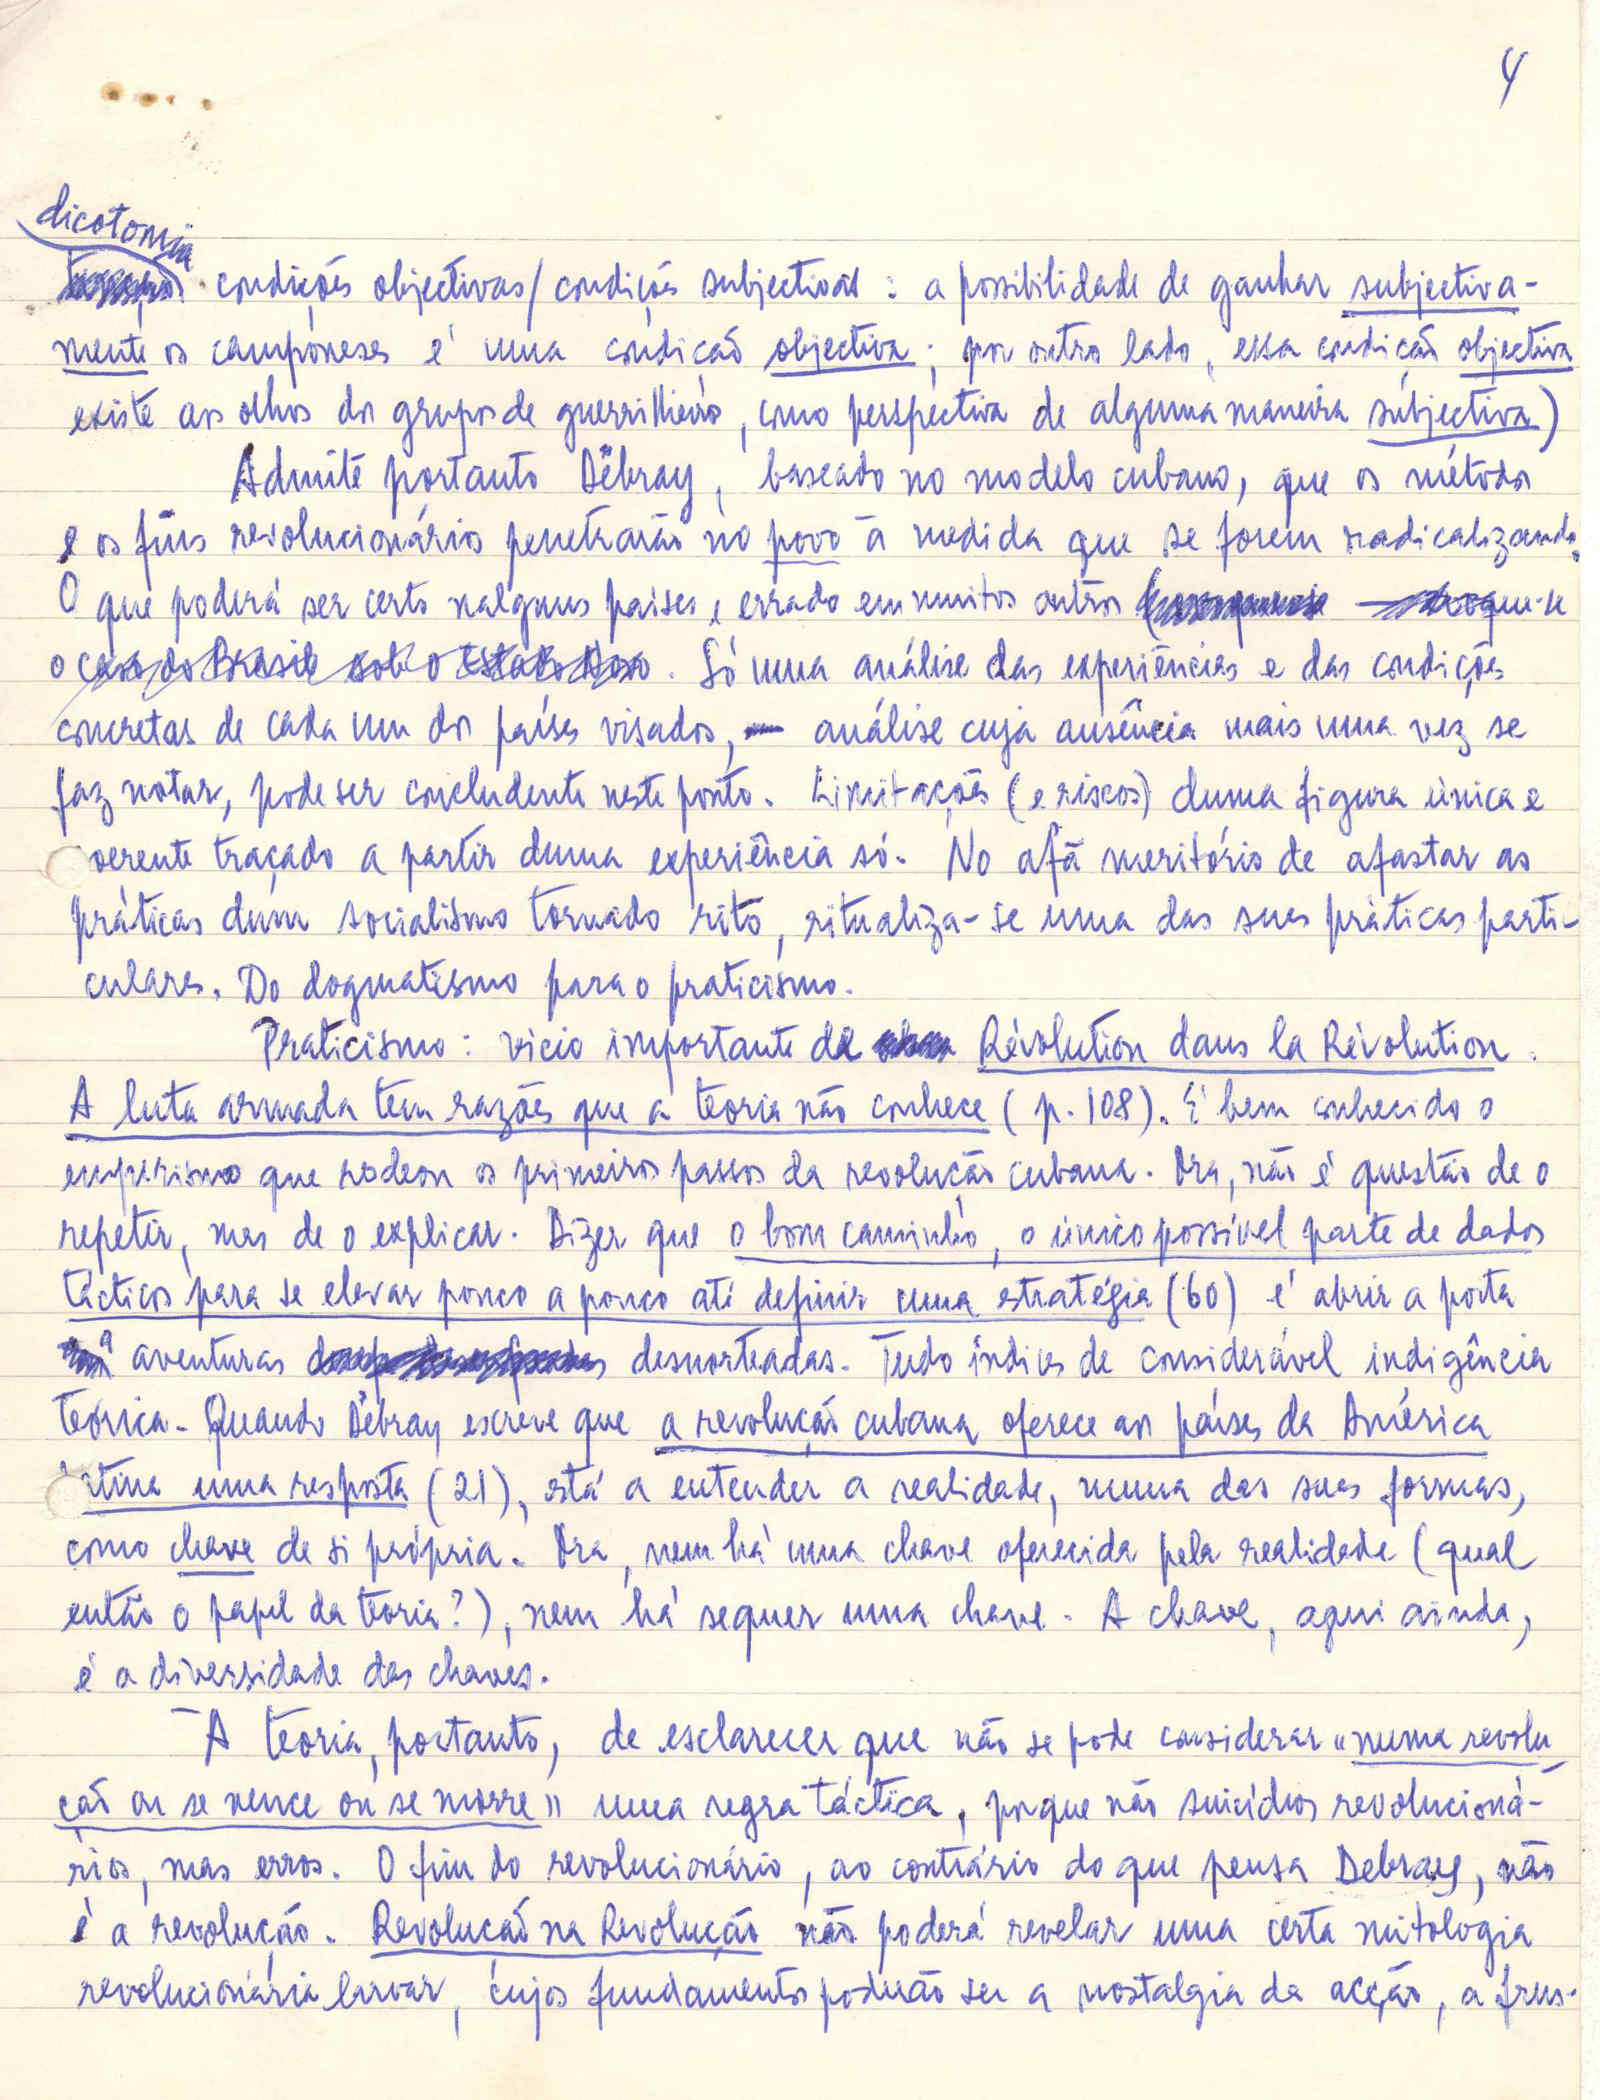 4
dicotomia
condições objectivas/condições subjectivas : a possibilidade de ganhar subjectiva-
mente os camponeses é uma condição objectiva ; por outro lado, essa condição objectiva
existe aos olhos do grupo de guerrilheiros, como perspectiva de alguma maneira subjectiva)
Admite portanto Debray, baseado no modelo cubano, que os métodos
e os fins revolucionários penetrarão no povo à medida que se forem radicalizando.
O que poderá ser certo nalguns países, errado em muitos outros que-se
o caso do Brasil sob o Estado Novo. Só uma análise das experiências e das condições
concretas de cada um dos países visados, – análise cuja ausência mais uma vez se
faz notar, pode ser concludente neste ponto. Limitações (e riscos) duma figura única e
oerente traçado a partir duma experiência só. No afã meritório de afastar as
práticas dum socialismo tornado rito, ritualiza-se uma das suas práticas parti-
culares. Do dogmatismo para o praticismo.
Praticismo: vício importante de Révolution dans la Révolution.
A luta armada tem razões que a teoria não conhece (p. 108). É bem conhecido o
empirismo que rodeou os primeiros passos da revolução cubana. Ora, não é questão de o
repetir, mas de o explicar. Dizer que o bom caminho, o único possível parte de dados
tácticos para se elevar pouco a pouco até definir uma estratégia (60) é abrir a porta
a aventuras desnorteadas. Tudo índices de considerável indigência
teórica. Quando Debray escreve que a revolução cubana oferece aos países da América
atina uma resposta (21), está a entender a realidade, numa das suas formas,
como chave de si própria. Ora, nem há uma chave oferecida pela realidade (qual
então o papel da teoria?), nem há sequer uma chave. A chave, aqui ainda,
é a diversidade das chaves.
A teoria, portanto, de esclarecer que não se pode considerar «numa revolu
ção ou se vence ou se morre» uma regra táctica, porque não suicídios revolucioná-
rios, mas erros. O fim do revolucionário, ao contrário do que pensa Debray, não
é a revolução. Revolução na Revolução não poderá revelar uma certa mitologia
revolucionária larvar, cujos fundamentos poderão ser a nostalgia da acção, a frus-